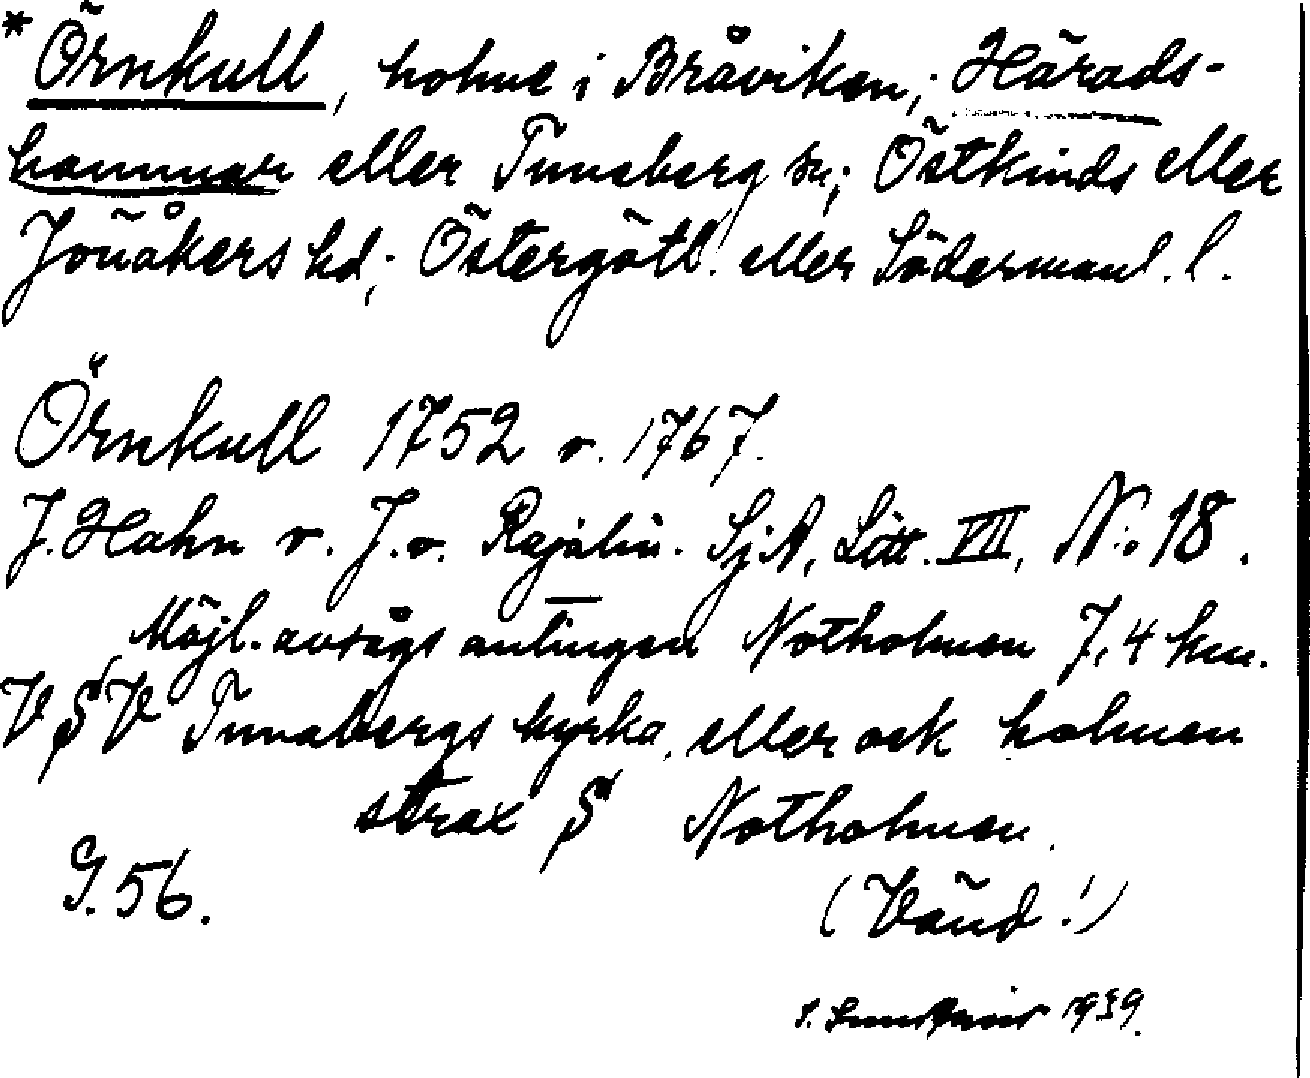 * Örnkull, holme i Bråviken; Härads-
hammar eller Tunaberg sn; Östkinds eller
Jönåkers hd; Östergötl. eller Södermanl. l.
Örnkull 1752 o. 1767.
J. Hahn o. J. v. Rajalin. Sj.A, Litt. VII, No 18.
Möjl. avsågs antingen Notholmen 7,4 km.
V § V Tunabergs kyrka, eller ock holmen
strax § Notholmen.
G. 56.
(Vänd!)
1939.